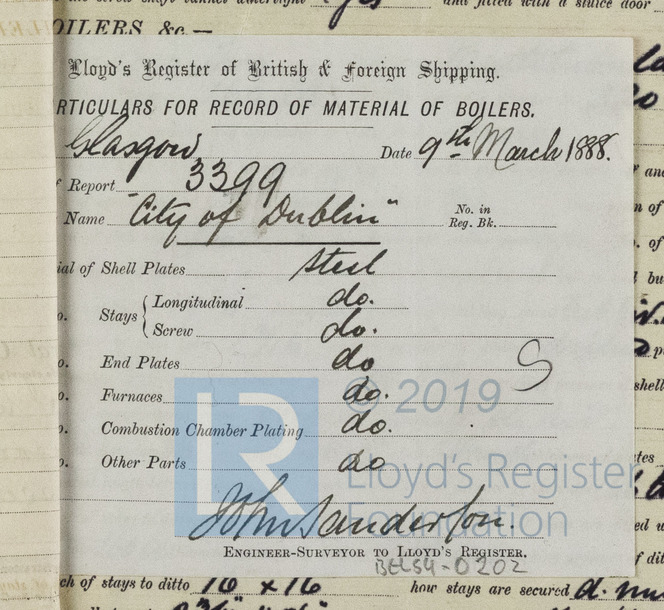 and fitted with a sluice door
OILERS, &c.—
Lloyd's Register of British & Foreign Shipping.
RTICULARS FOR RECORD OF MATERIAL OF BOILERS.
Glasgow Date 9th March 1888.
Report 3399
Name "City of Dublin" No. in Reg. Bk.
ial of Shell Plates steel
o. Stays { Longitudinal do.
Screw do.
o. End Plates do
S
o. Furnaces do.
o. Combustion Chamber Plating do.
o. Other Parts do
LR © 2019
Lloyd's Register
Foundation
John Sanderson.
ENGINEER-SURVEYOR TO LLOYD'S REGISTER.
BEL54-0202
ch of stays to ditto 16 x 16 how stays are secured d. nu